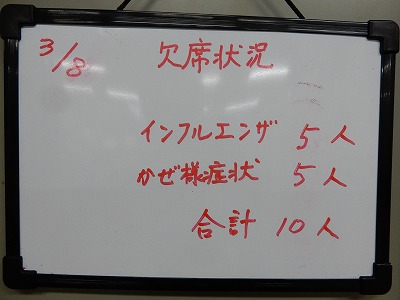 3/8 欠席状況
インフルエンザ 5人
かぜ様症状 5人
合計 10人